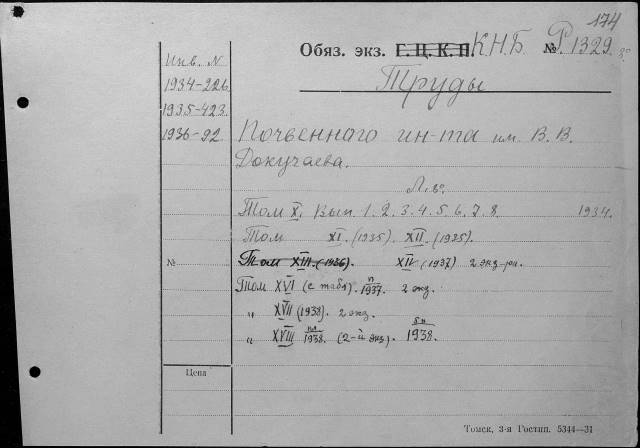 174
Обяз. экз. Г. Ц. К. П. К.Н.Б № Р 1329
Инв. N
1934-226
1935-423
1936-92
Труды
Почвеннаго ин-та им. В. В.
Докучаева.
Том X, Вып 1. 2. 3. 4. 5. 6. 7. 8. 1934.
Том XI. (1935). XII. (1935).
№ Том XIII. (1936). (1937) 2 экз-ра.
Том XVI (с табл). 1937. 2 экз.
" XVII (1938). 2 экз.
" XVIII 1938. (2-й экз). 1938.
Цена
Томск, 3-я Гостип. 5344—31